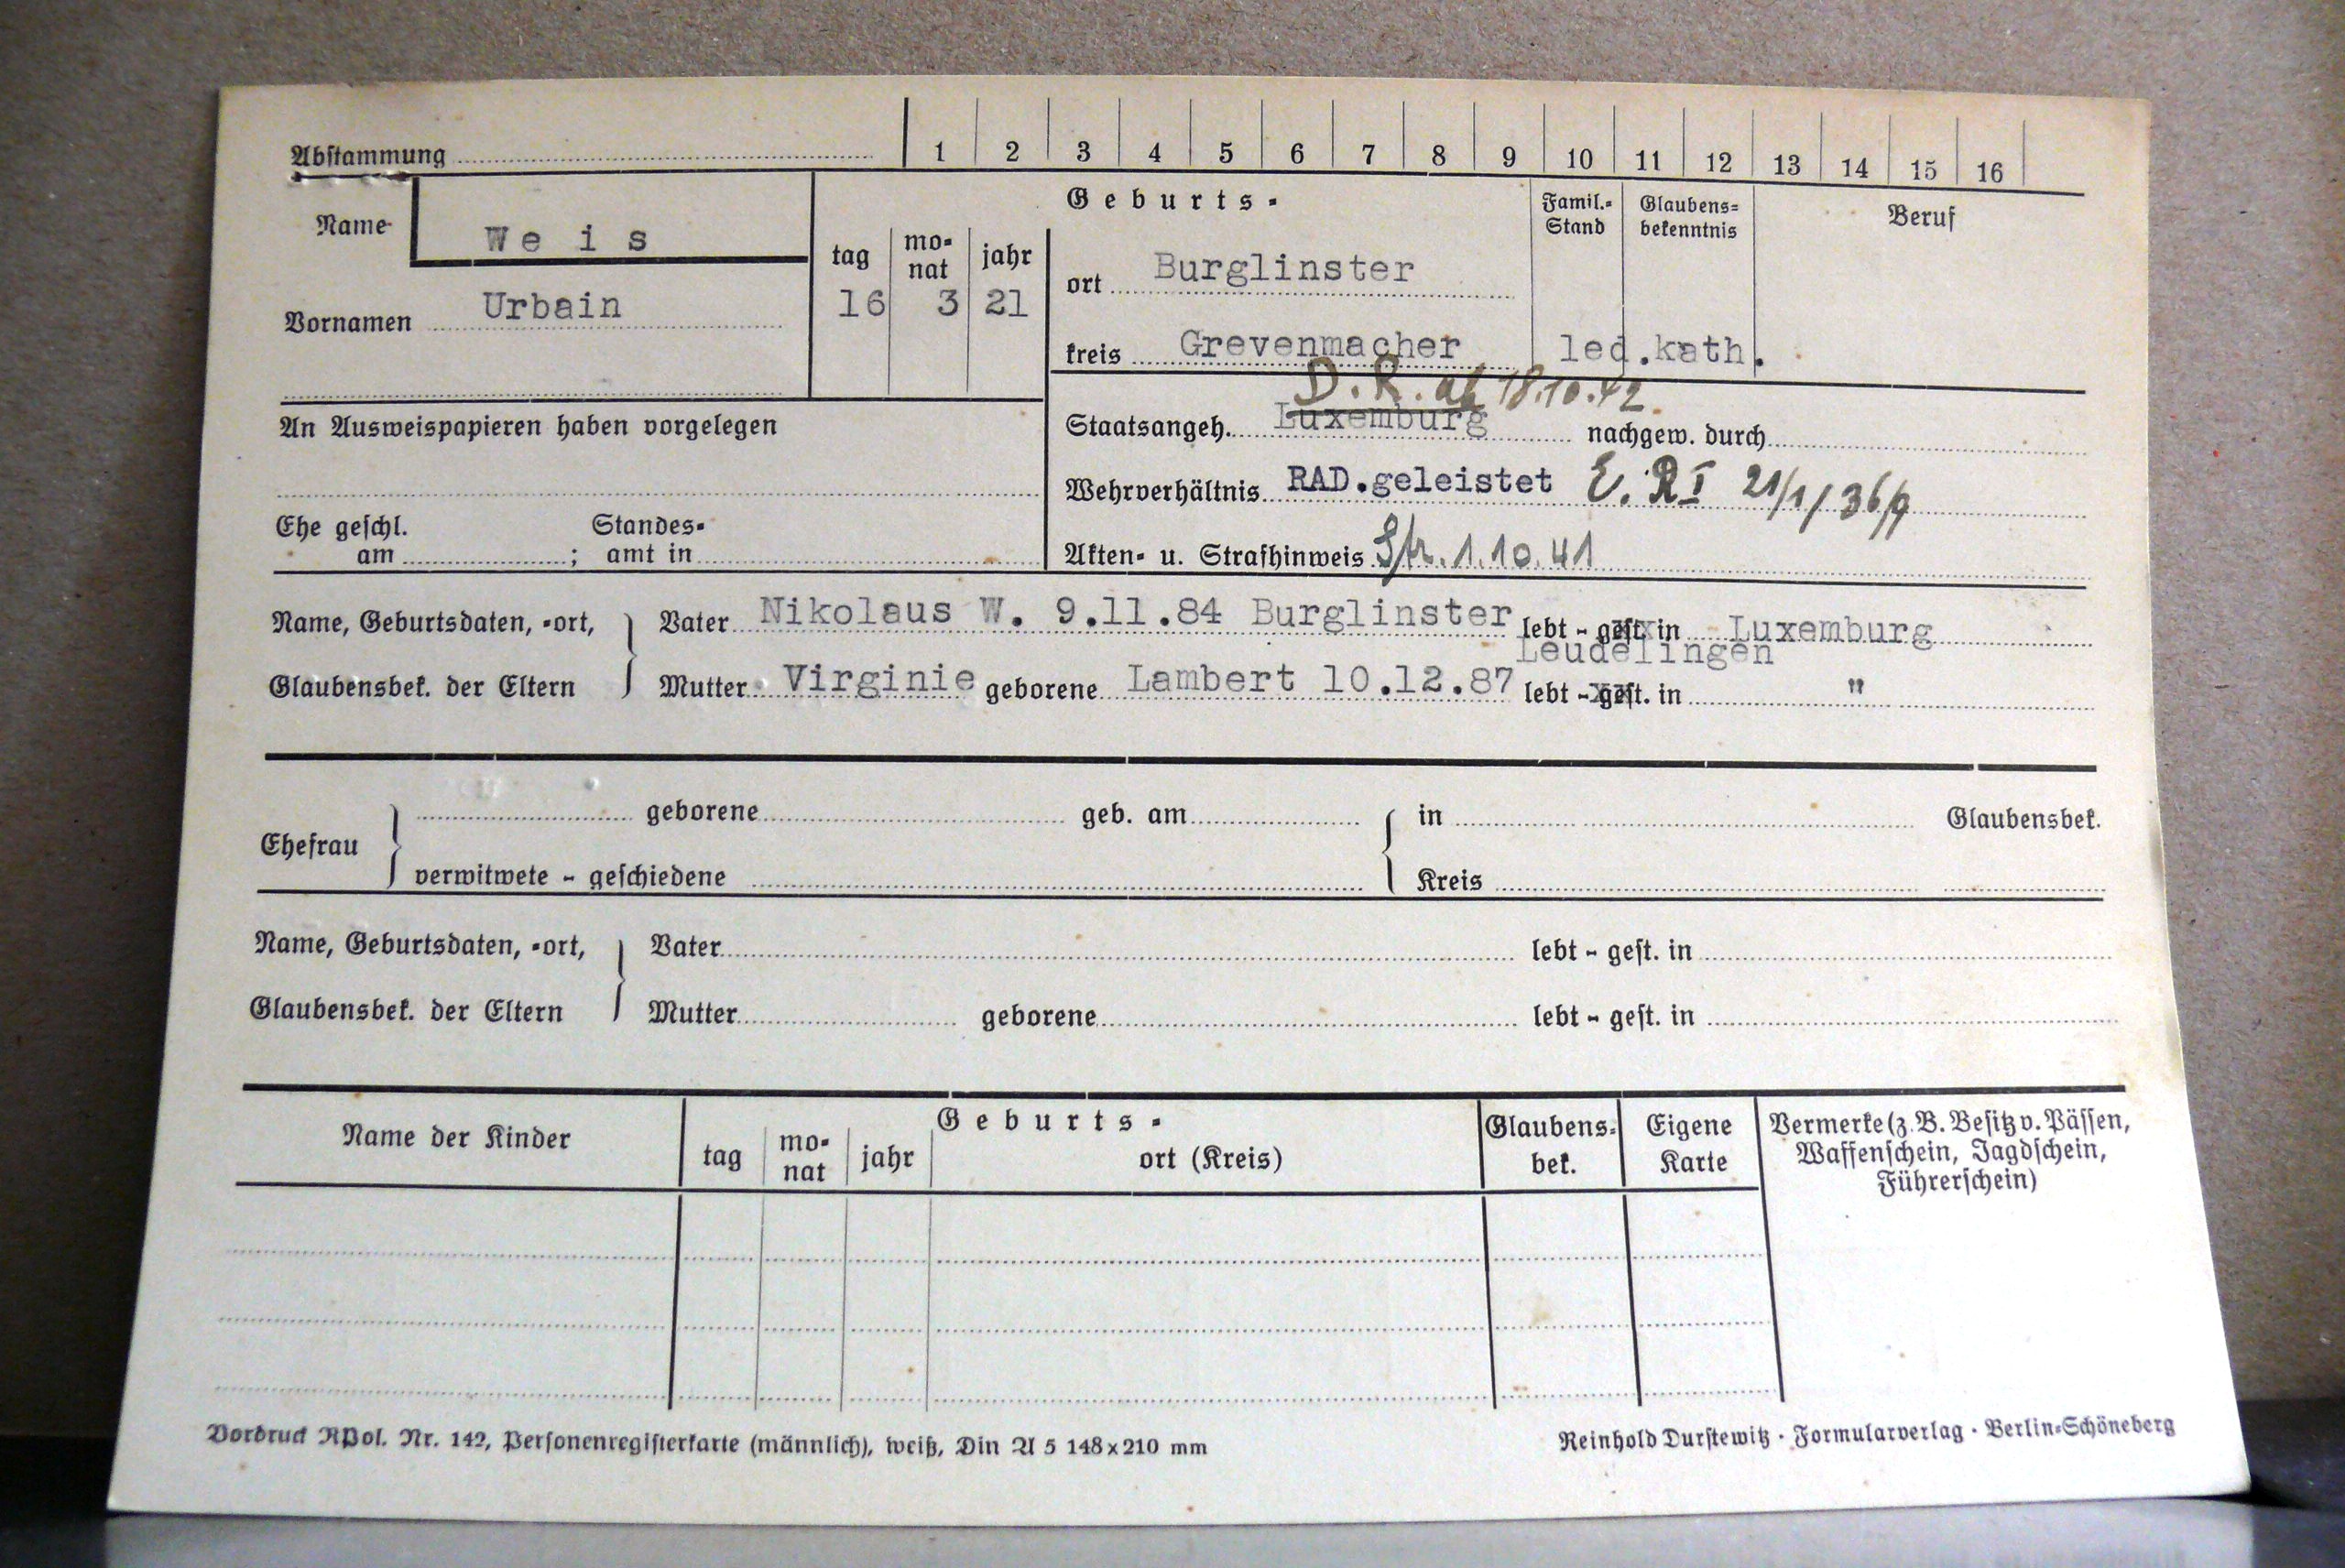 Abstammung 1 2 3 4 5 6 7 8 9 10 11 12 13 14 15 16
Name Weis
Vornamen Urbain
Geburts-
tag monat jahr
16 3 21
ort Burglinster
kreis Grevenmacher
Famil.-Stand
led.
Glaubens-bekenntnis
kath.
Beruf
An Ausweispapieren haben vorgelegen
D. R. ab 18.10.42.
Staatsangeh. Luxemburg nachgew. durch
Wehrverhältnis RAD.geleistet E. R I 21/1/36/9
Ehe geschl. am ; Standes-amt in
Akten- u. Strafhinweis Str. 1.10.41
Name, Geburtsdaten, -ort,
Glaubensbek. der Eltern
Vater Nikolaus W. 9.11.84 Burglinster lebt - gest. in Luxemburg
Leudelingen
Mutter Virginie geborene Lambert 10.12.87 lebt - gest. in "
Ehefrau
geborene geb. am in Glaubensbek.
verwitwete - geschiedene Kreis
Name, Geburtsdaten, -ort,
Glaubensbek. der Eltern
Vater lebt - gest. in
Mutter geborene lebt - gest. in
Name der Kinder
Geburts-
tag monat jahr ort (Kreis)
Glaubens-bek.
Eigene Karte
Vermerke (z. B. Besitz v. Pässen,
Waffenschein, Jagdschein,
Führerschein)
Vordruck RPol. Nr. 142, Personenregisterkarte (männlich), weiß, Din A 5 148x210 mm
Reinhold Durstewitz · Formularverlag · Berlin-Schöneberg